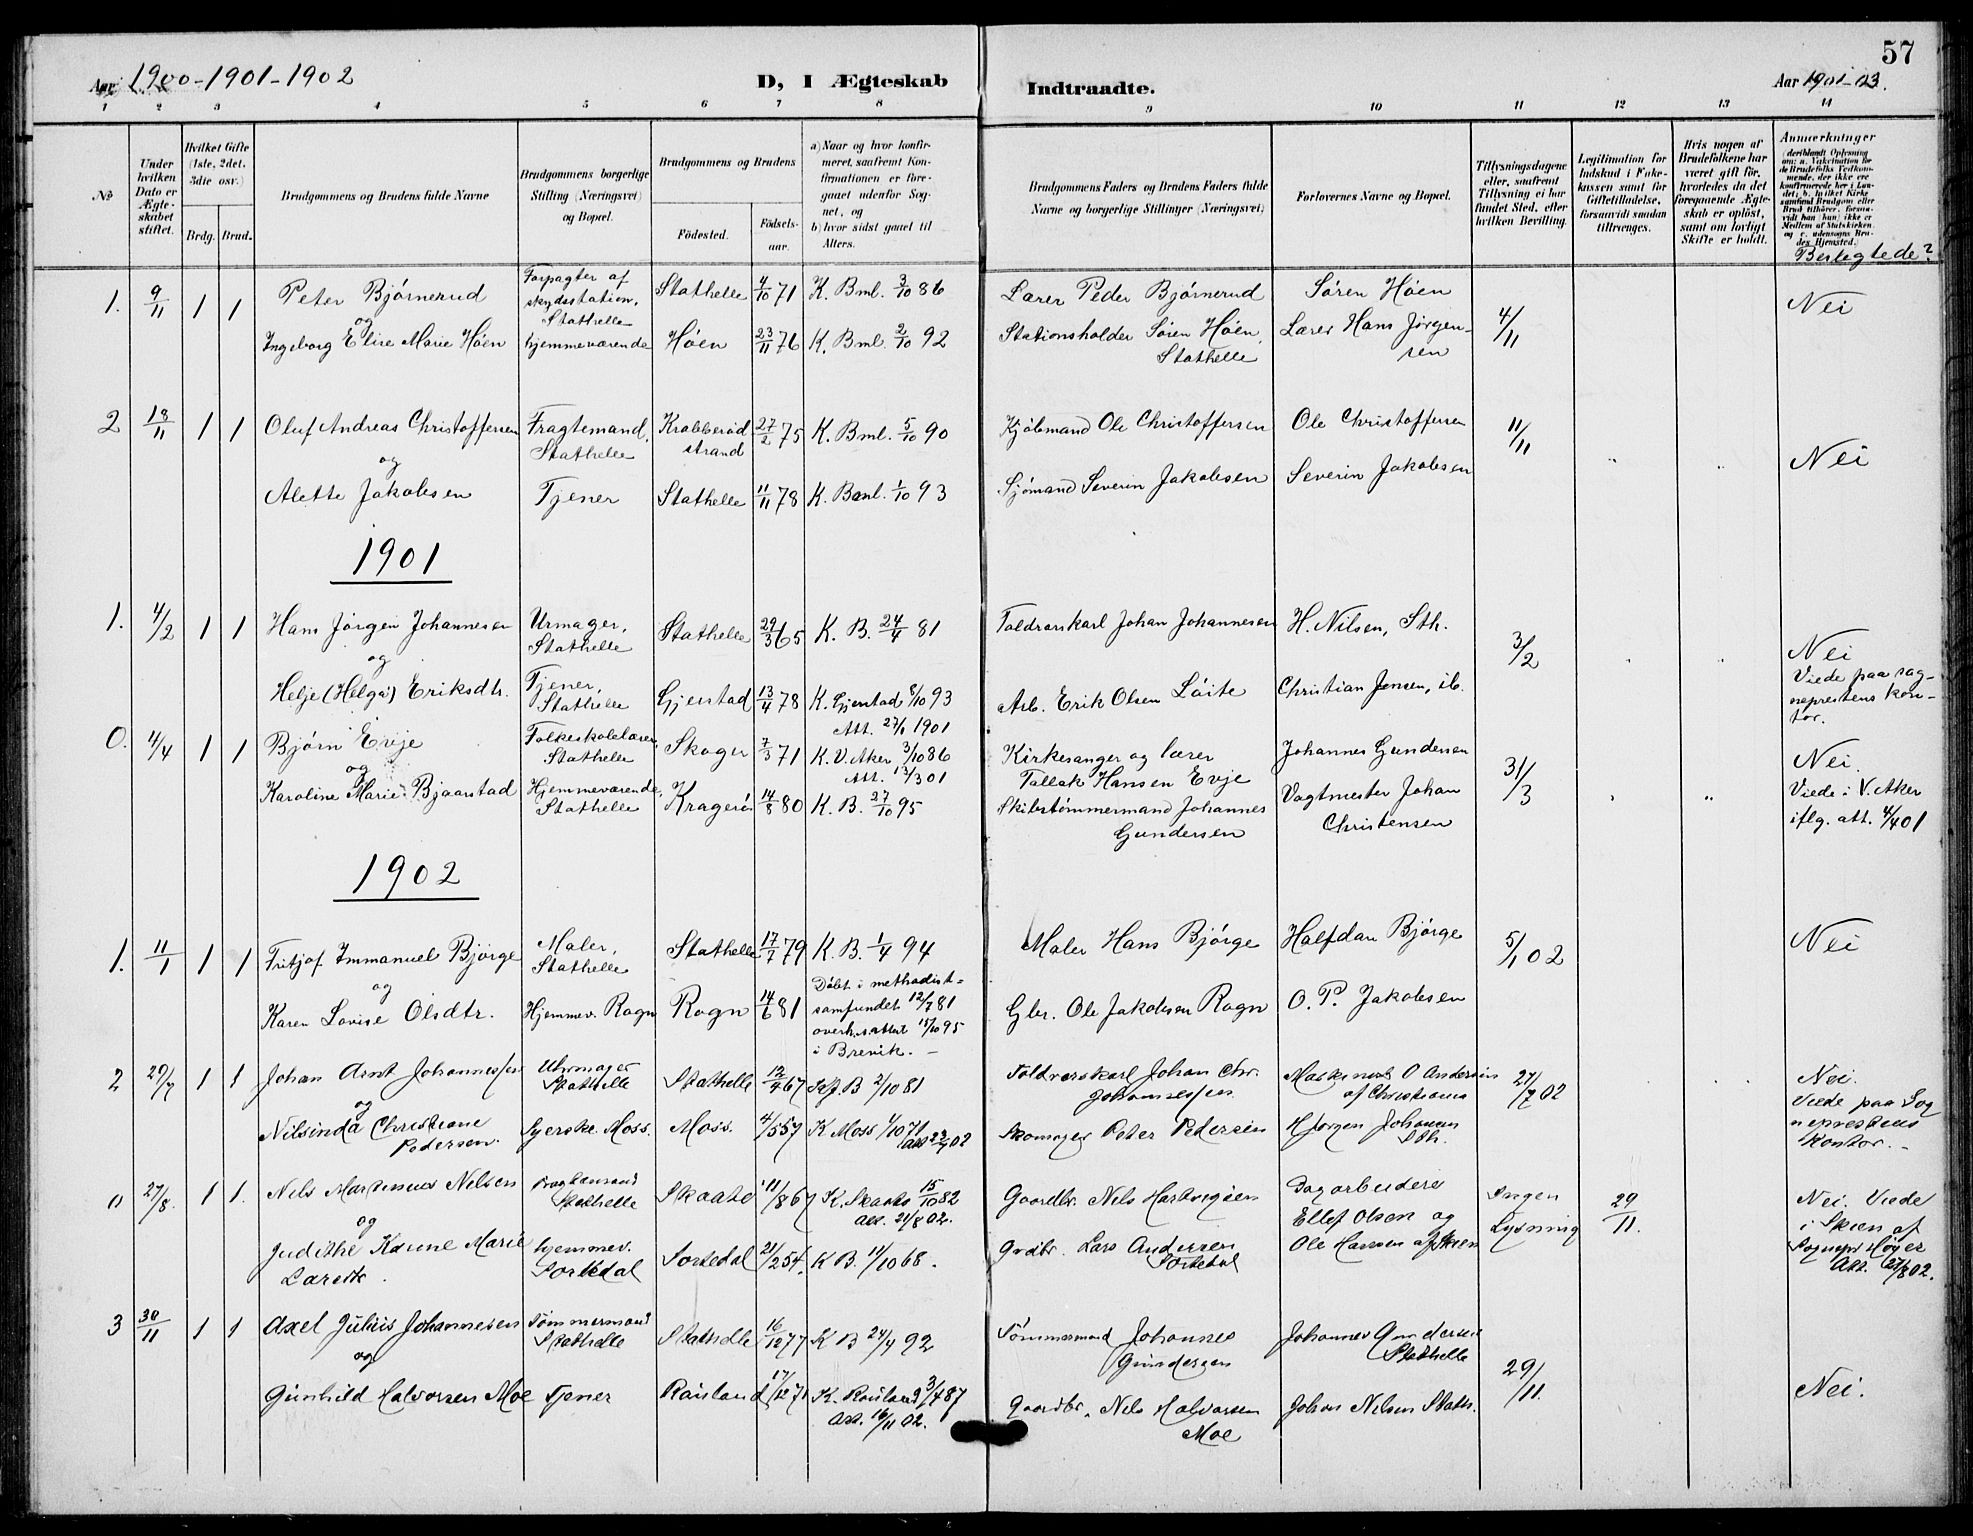 57
Aar 1900-1901-1902
D, I Ægteskab
Indtraadte.
Aar 1901-03.
1 2 3 4 5 6 7 8 9 10 11 12 13 14
No
Under hvilken Dato er Ægteskabet stiftet.
Hvilket Gifte (1ste, 2det, 3die osv.)
Brdg. Brud.
Brudgommens og Brudens fulde Navne
Brudgommens borgerlige Stilling (Næringsvei) og Bopæl.
Brudgommens og Brudens
Fødested.
Fødselsaar.
a) Naar og hvor konfirmeret, saafremt Konfirmationen er foregaaet udenfor Sognet, og
b) hvor sidst gaaet til Alters.
Brudgommens Faders og Brudens Faders fulde Navne og borgerlige Stillinger (Næringsvei)
Forlovernes Navne og Bopæl.
Tillysningsdagene eller, saafremt Tillysning ei har fundet Sted, efter hvilken Bevilling.
Legitimation for Indskud i Enkekassen samt for Giftetilladelse, forsaavidt saadan tiltrænges.
Hris nogen af Brudefolkene har været gift før, hvorledes da det foregaaende Ægteskab er opløst, samt om lovligt Skifte er holdt.
Anmerkninger
Beslegtede?
1. 9/11 1 1 Peter Bjørnerud Forpagter af skydsstation, Stathelle Stathelle 4/10 71 K. Bml. 3/10 86 Lærer Peder Bjørnerud Søren Høen 4/11 Nei
og
Ingeborg Elise Marie Høen hjemmeværende Høen 23/11 76 K. Bml. 2/10 92 Stationsholder Søren Høen, Stathelle Lærer Hans Jørgensen
2 18/11 1 1 Oluf Andreas Christoffersen Fragtemand, Stathelle Krabberødstrand 27/2 75 K. Bml. 5/10 90 Kjøbmand Ole Christoffersen Ole Christoffersen 11/11 Nei
og
Alette Jakobsen Tjener Stathelle 11/11 78 K. Baml. 1/10 93 Sjømand Severin Jakobsen Severin Jakobsen
1901
1. 4/2 1 1 Hans Jørgen Johannesen Urmager, Stathelle Stathelle 29/3 65 K. B. 24/4 81 Toldrorskarl Johan Johannesen H. Nilsen, Sth. 3/2 Nei
og
Helje (Helga) Eriksdtr. Tjener, Stathelle Gjerstad 13/4 78 K. Gjerstad 8/10 93 Att. 27/1 1901 Arb. Erik Olsen Løite Christian Jensen, ib. Viede paa sogneprestens kontor.
0. 4/4 1 1 Bjørn Evje Folkeskolelærer, Stathelle Skoger 7/3 71 K. V. Aker 3/10 86 Att. 13/3 01 Kirkesanger og lærer Tallak Hansen Evje Johannes Gundersen 31/3 Nei.
og
Karoline Marie Bjaarstad Hjemmeværende, Stathelle Kragerø 14/8 80 K. B. 27/10 95 Skibstømmermand Johannes Gundersen Vagtmester Johan Christensen Viede i V. Aker iflg. att. 4/4 01
1902
1. 11/1 1 1 Fritjof Immanuel Bjørge Maler, Stathelle Stathelle 17/7 79 K. B. 1/4 94 Maler Hans Bjørge Halfdan Bjørge 5/1 02 Nei
og
Karen Lovise Olsdtr. Hjemmev. Rogn Rogn 14/6 81 Døbt i methodistsamfundet 12/7 81 overh. s. attest 15/10 95 i Brevik. Gbr. Ole Jakobsen Rogn O. P. Jakobsen
2 29/7 1 1 Johan Arnt Johannessen Uhrmager Stathelle Stathelle 12/4 67 B 2/10 81 Toldrorskarl Johan Chr. Johannessen O Andersen af Christiania 27/7 02 Nei.
og
Nilsinda Christiane Pedersen. Syerske Moss. Moss. 4/5 57 K Moss 1/10 71 Att 22/7 02 Skomager Peter Pedersen H Jørgen Johansen Sth. Viede paa Sogneprestens Kontor.
0 27/8. 1 1. Nels Martinus Nelsen Fragtemand Stathelle Skaatø 11/8 67 K. Skaatø 15/10 82 Att. 21/8 02. Gaardbr. Nels Hartvigsen Dagarbeidere Ellef Olsen og Ole Hansen af Skien Ingen Lysning 29/11. Nei. Viede i Skien af Sognepr Høyer Att. 27/8 02.
og
Judithe Karine Marie Larsdtr. hjemmev. Sortedal Sortedal 21/2 54. K B. 11/10 68. Grdbr. Lars Andersen Sortedal
3 30/11 1 1 Axel Julius Johannesen Tømmermand Stathelle Stathelle 16/12 77 K B 24/4 92 Tømmermand Johannes Gundersen Johannes Gundersen Stathelle 29/11. Nei.
og
Gunhild Halvorsen Moe Tjener Rauland 17/12 71 K. Rauland 3/4 87 Att. 16/11 02. Gaardbr. Nels Halvorsen Moe Johan Nilsen Stath.